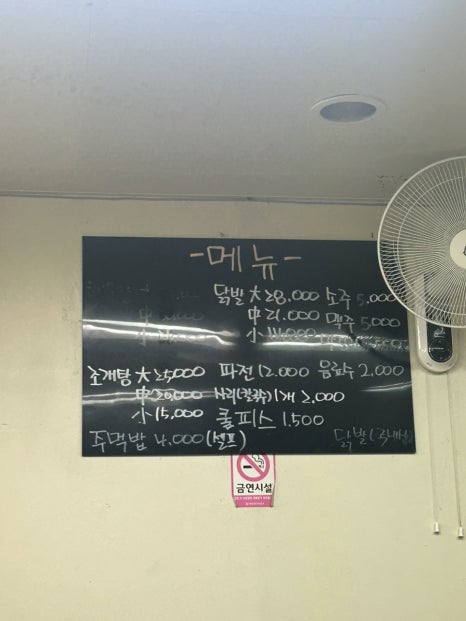 -메뉴-
닭발 大 28,000 소주 5,000
中 21,000 맥주 5,000
小
조개탕 大 25,000 파전 12,000 음료수 2,000
中 20,000 사리(칼국수) 1개 2,000
小 15,000 쿨피스 1,500
주먹밥 4,000 (셀프) 닭발(국내산)
금연시설